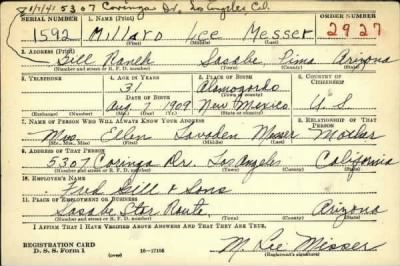 8/7/41 5307 Coringa Dr, Los Angeles Cal.
SERIAL NUMBER 1. NAME (Print) ORDER NUMBER
1592 Millard Lee Messer 2927
(First) (Middle) (Last)
2. ADDRESS (Print)
Gill Ranch Sasabe, Pima Arizona
(Number and street or R. F. D. number) (Town) (County) (State)
3. TELEPHONE 4. AGE IN YEARS 5. PLACE OF BIRTH 6. COUNTRY OF CITIZENSHIP
31 Alamogordo
DATE OF BIRTH (Town or county)
Aug 7 1909 New Mexico U. S.
(Exchange) (Number) (Mo.) (Day) (Yr.) (State or country)
7. NAME OF PERSON WHO WILL ALWAYS KNOW YOUR ADDRESS 8. RELATIONSHIP OF THAT PERSON
Mrs. Ellen Messer Mother
(Mr., Mrs., Miss) (First) (Middle) (Last)
9. ADDRESS OF THAT PERSON
5307 Coringa Dr. Los Angeles California
(Number and street or R. F. D. number) (Town) (County) (State)
10. EMPLOYER'S NAME
Fred Gill & Sons
11. PLACE OF EMPLOYMENT OR BUSINESS
Sasabe Star Route, Arizona
(Number and street or R. F. D. number) (Town) (County) (State)
I AFFIRM THAT I HAVE VERIFIED ABOVE ANSWERS AND THAT THEY ARE TRUE.
REGISTRATION CARD
D. S. S. Form 1 (over) 16-17105 M. Lee Messer
(Registrant's signature)